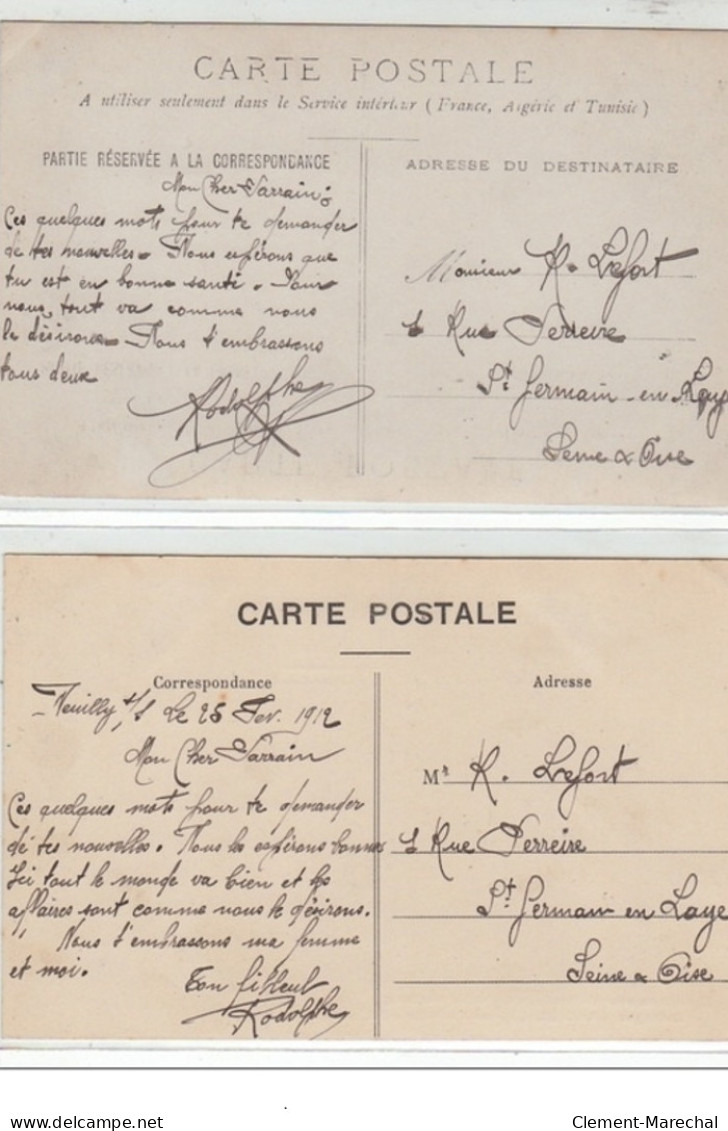 CARTE POSTALE
A utiliser seulement dans le Service intérieur (France, Algérie et Tunisie)
PARTIE RÉSERVÉE A LA CORRESPONDANCE
Mon Cher Parrain:
Ces quelques mots pour te demander
de tes nouvelles. Nous espérons que
tu est en bonne santé. Pour
nous, tout va comme nous
le désirons. Nous t'embrassons
tous deux
Rodolphe
ADRESSE DU DESTINATAIRE
Monsieur K. Lefort
Rue Perreire
St Germain-en-Laye
Seine & Oise
CARTE POSTALE
Correspondance
Neuilly s/s Le 25 Fev. 1912
Mon Cher Parrain
Ces quelques mots pour te demander
de tes nouvelles. Nous les espérons bonnes
Ici tout le monde va bien et les
affaires sont comme nous le désirons.
Nous t'embrassons ma femme
et moi.
Ton filleul
Rodolphe
Adresse
Mr K. Lefort
Rue Perreire
St Germain en Laye
Seine & Oise
Clement-Marechal